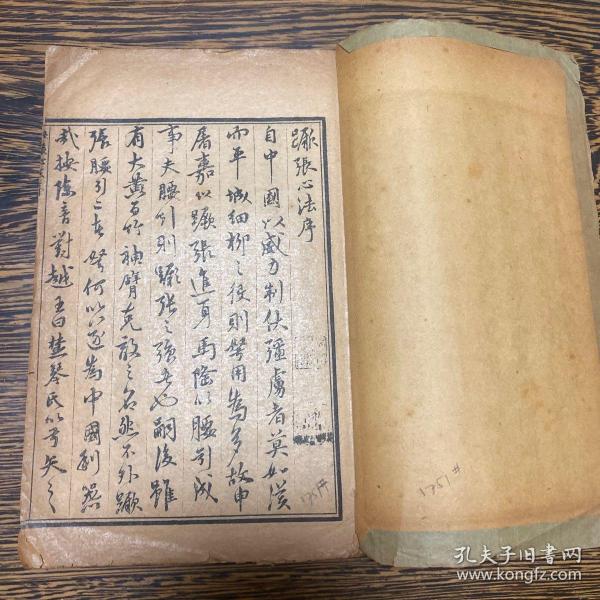 蹶張心法序
自中國以威力制伏彊虜者莫如漢
而平城細柳之後則弩用為多故申
屠嘉以蹶張進身馬隆以腰引成
事夫腰引則蹶張之強者也嗣後雖
有大黃百竹神臂克敵之名然不外蹶
張腰引二者弩何以遂為中國利器
哉按陳音對越王曰楚琴氏以弓矢之
1751#
1751#
孔夫子旧书网
www.kongfz.com